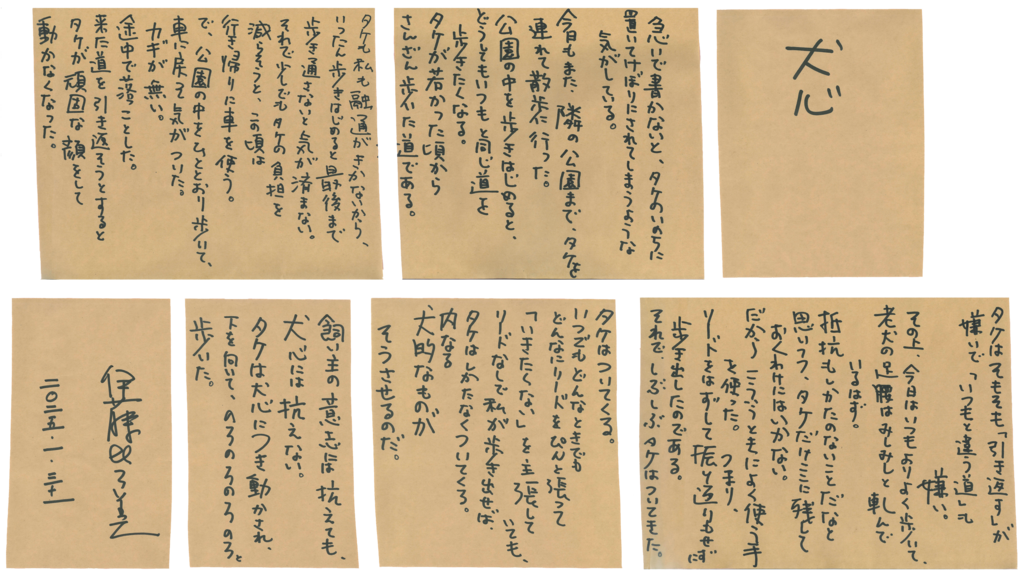 犬心
急いで書かないと、タケのいのちに
置いてけぼりにされてしまうような
気がしている。
今日もまた、隣の公園まで、タケを
連れて散歩に行った。
公園の中を歩きはじめると、
どうしてもいつもと同じ道を
歩きたくなる。
タケが若かった頃から
さんざん歩いた道である。
タケも私も融通がきかないから、
いったん歩きはじめると最後まで
歩き通さないと気が済まない。
それで少しでもタケの負担を
減らそうと、この頃は
行き帰りに車を使う。
で、公園の中をひととおり歩いて、
車に戻って気がついた。
カギが無い。
途中で落っことした。
来た道を引き返そうとすると
タケが頑固な顔をして
動かなくなった。
タケはそもそも「引き返す」が
嫌いで「いつもと違う道」も
嫌い。
その上、今日はいつもよりよく歩いて、
老犬の足腰はみしみしと軋んで
いるはず。
抵抗もしかたのないことだなと
思いつつ、タケだけここに残して
おくわけにはいかない。
だから、こういうときによく使う手
を使った。つまり、
リードをはずして振り返りもせずに
歩き出したのである。
それで、しぶしぶタケはついてきた。
タケはついてくる。
いつでもどんなときでも
どんなにリードをぴんと張って
「いきたくない」を主張していても、
リードなしで私が歩き出せば、
タケはしかたなくついてくる。
内なる
犬的なものが
そうさせるのだ。
飼い主の意志には抗えても、
犬心には抗えない。
タケは犬心につき動かされ、
下を向いて、のろのろのろのろと
歩いた。
伊藤比呂美
二〇二五・一・三十一